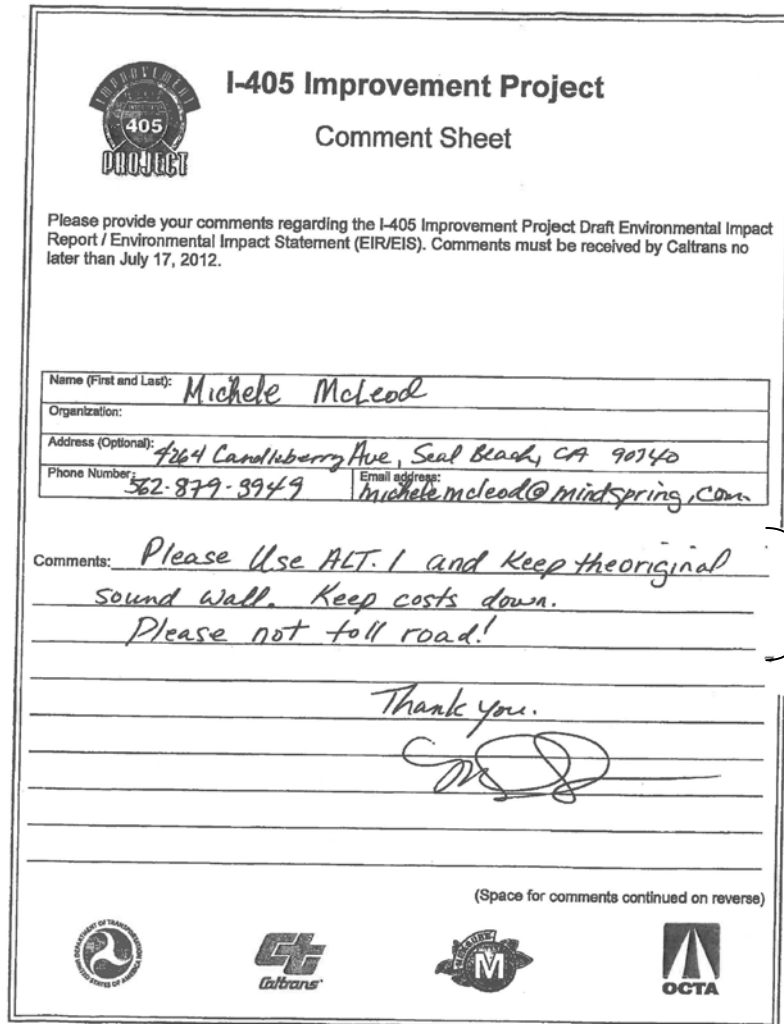 IMPROVEMENT
405
PROJECT
I-405 Improvement Project
Comment Sheet
Please provide your comments regarding the I-405 Improvement Project Draft Environmental Impact
Report / Environmental Impact Statement (EIR/EIS). Comments must be received by Caltrans no
later than July 17, 2012.
Name (First and Last): Michele McLeod
Organization:
Address (Optional): 4264 Candleberry Ave, Seal Beach, CA 90740
Phone Number: 562-879-3949 Email address: michelemcleod@mindspring.com
Comments: Please Use ALT. 1 and Keep the original
sound wall. Keep costs down.
Please not toll road!
Thank you.
(Space for comments continued on reverse)
DEPARTMENT OF TRANSPORTATION
UNITED STATES OF AMERICA
Caltrans
MEASURE
M
OCTA